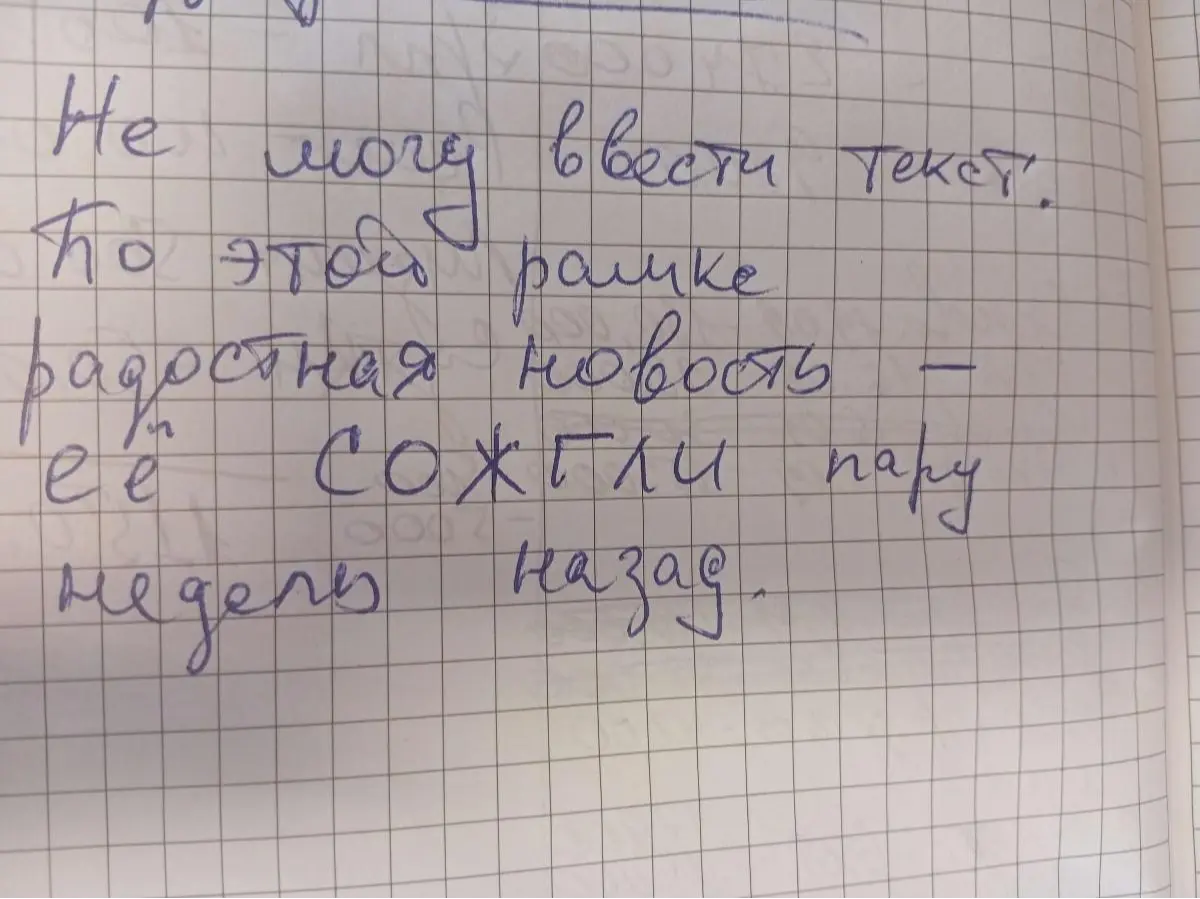 Не могу ввести текст.
По этой рамке
радостная новость –
её СОЖГЛИ пару
недель назад.